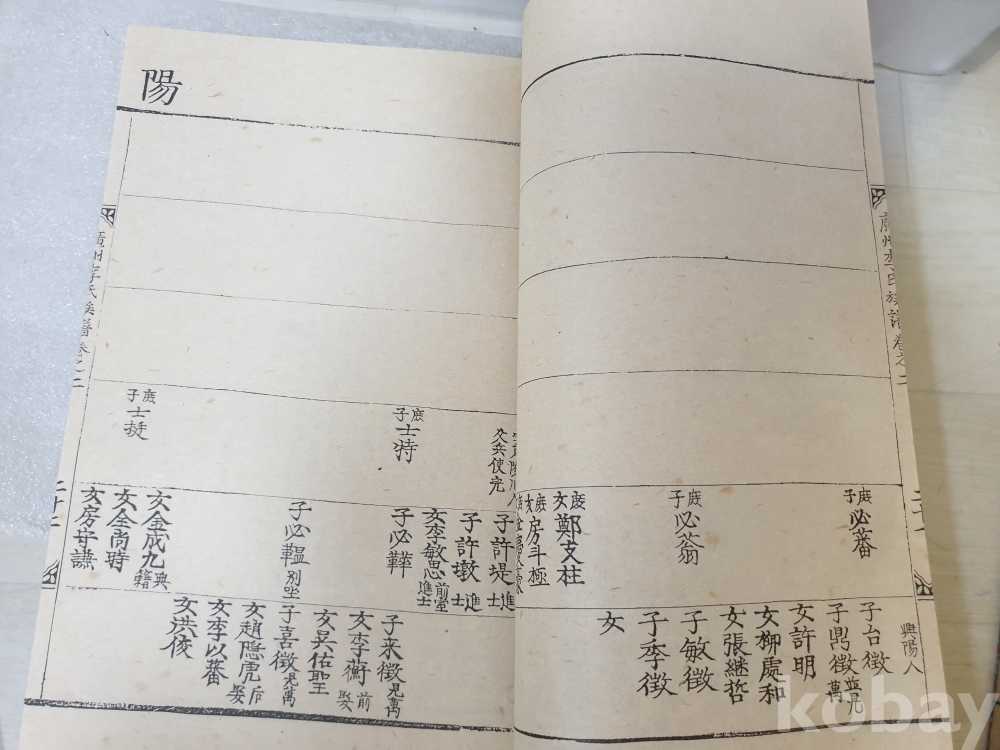 廣州李氏族譜卷之二
二十一
興陽人
庶子必蕃
庶子必蓊
庶女鄭支柱
庶女房斗極
子台徵
子鼎徵 並見萬
女許明
女柳處和
女張継哲
子敏徵
子季徵
女
陽
庶子士特
庶子士挺
子許堤 進士
子許墩 進士
女李敏思 前室進士
子必鞸
子必鞰 別坐
女金成九 典籍
女全尚時
女房守謙
子来徵 見萬
女李蘅 前娶
女吳佑聖
子喜徵 見萬
女趙隱虎 后娶
女李以蕃
女洪俊
廣州李氏族譜卷之二
二十二
kobay